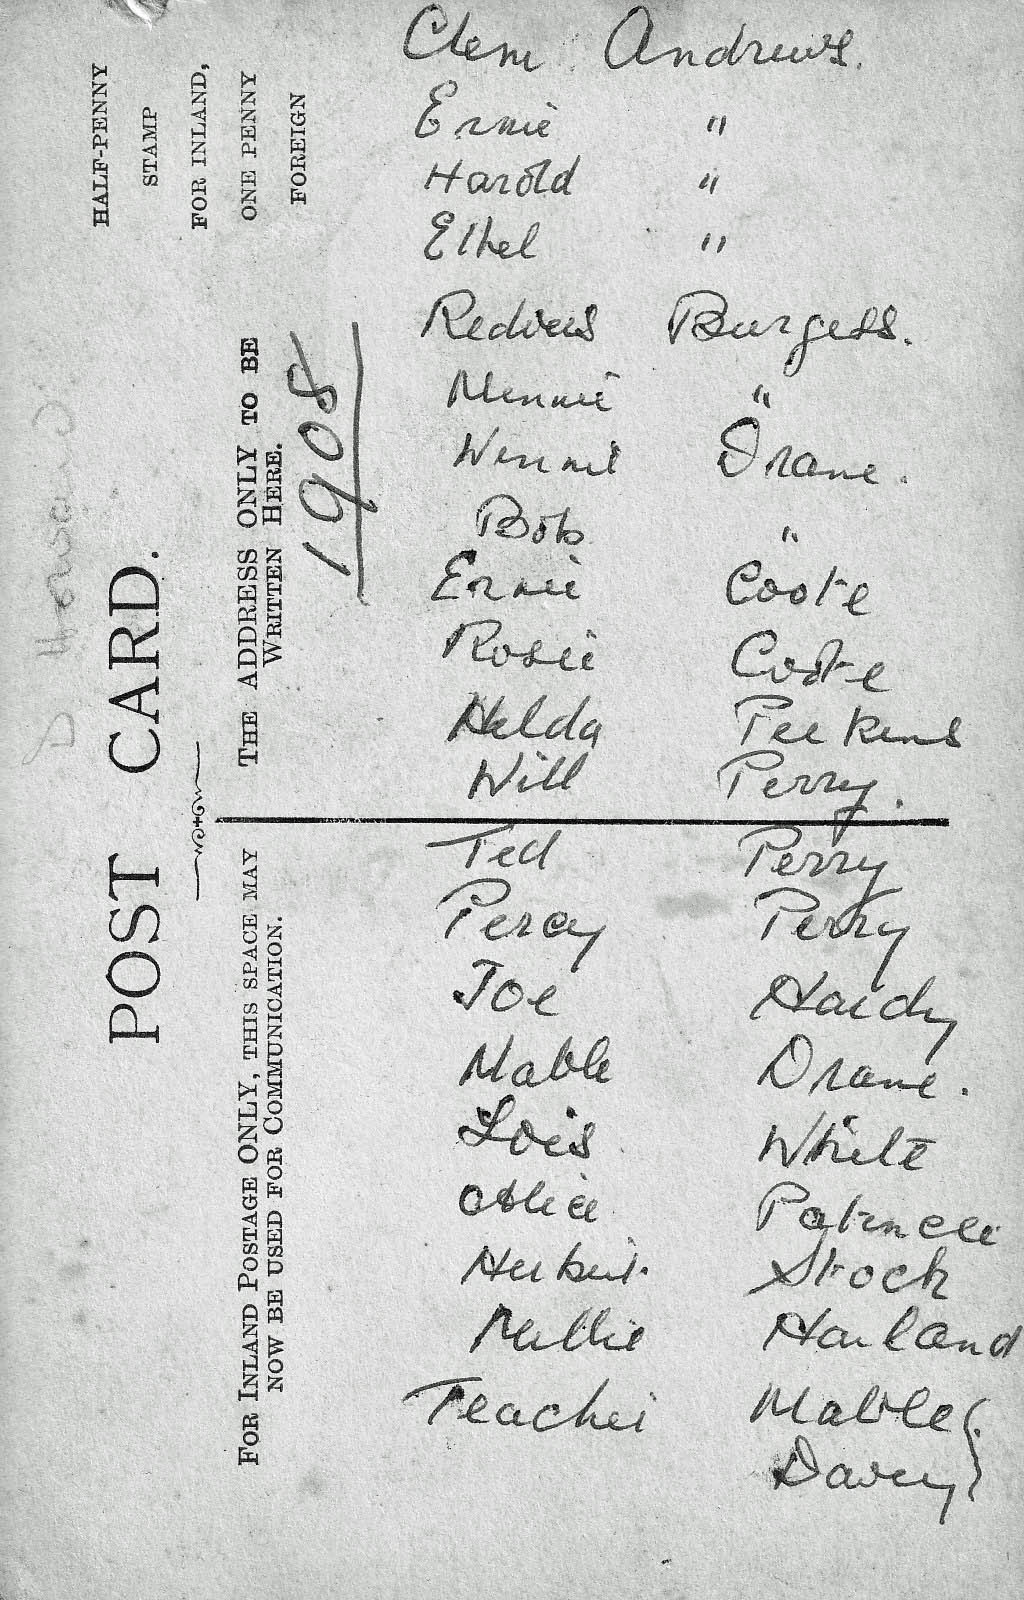 HALF-PENNY
STAMP
FOR INLAND,
ONE PENNY
FOREIGN
POST CARD.
THE ADDRESS ONLY TO BE
WRITTEN HERE.
1908
FOR INLAND POSTAGE ONLY, THIS SPACE MAY
NOW BE USED FOR COMMUNICATION.
Clem Andrews.
Ernie "
Harold "
Ethel "
Burgess.
Minnie "
Winnie Drane.
Bob "
Ernie Coote
Rosie Coote
Hilda
Will Perry.
Ted Perry
Percy Perry
Joe Hardy
Mable Drane.
Lois White
Alice
Herbert Stock
Nellie Harland
Teacher Mable
Davey